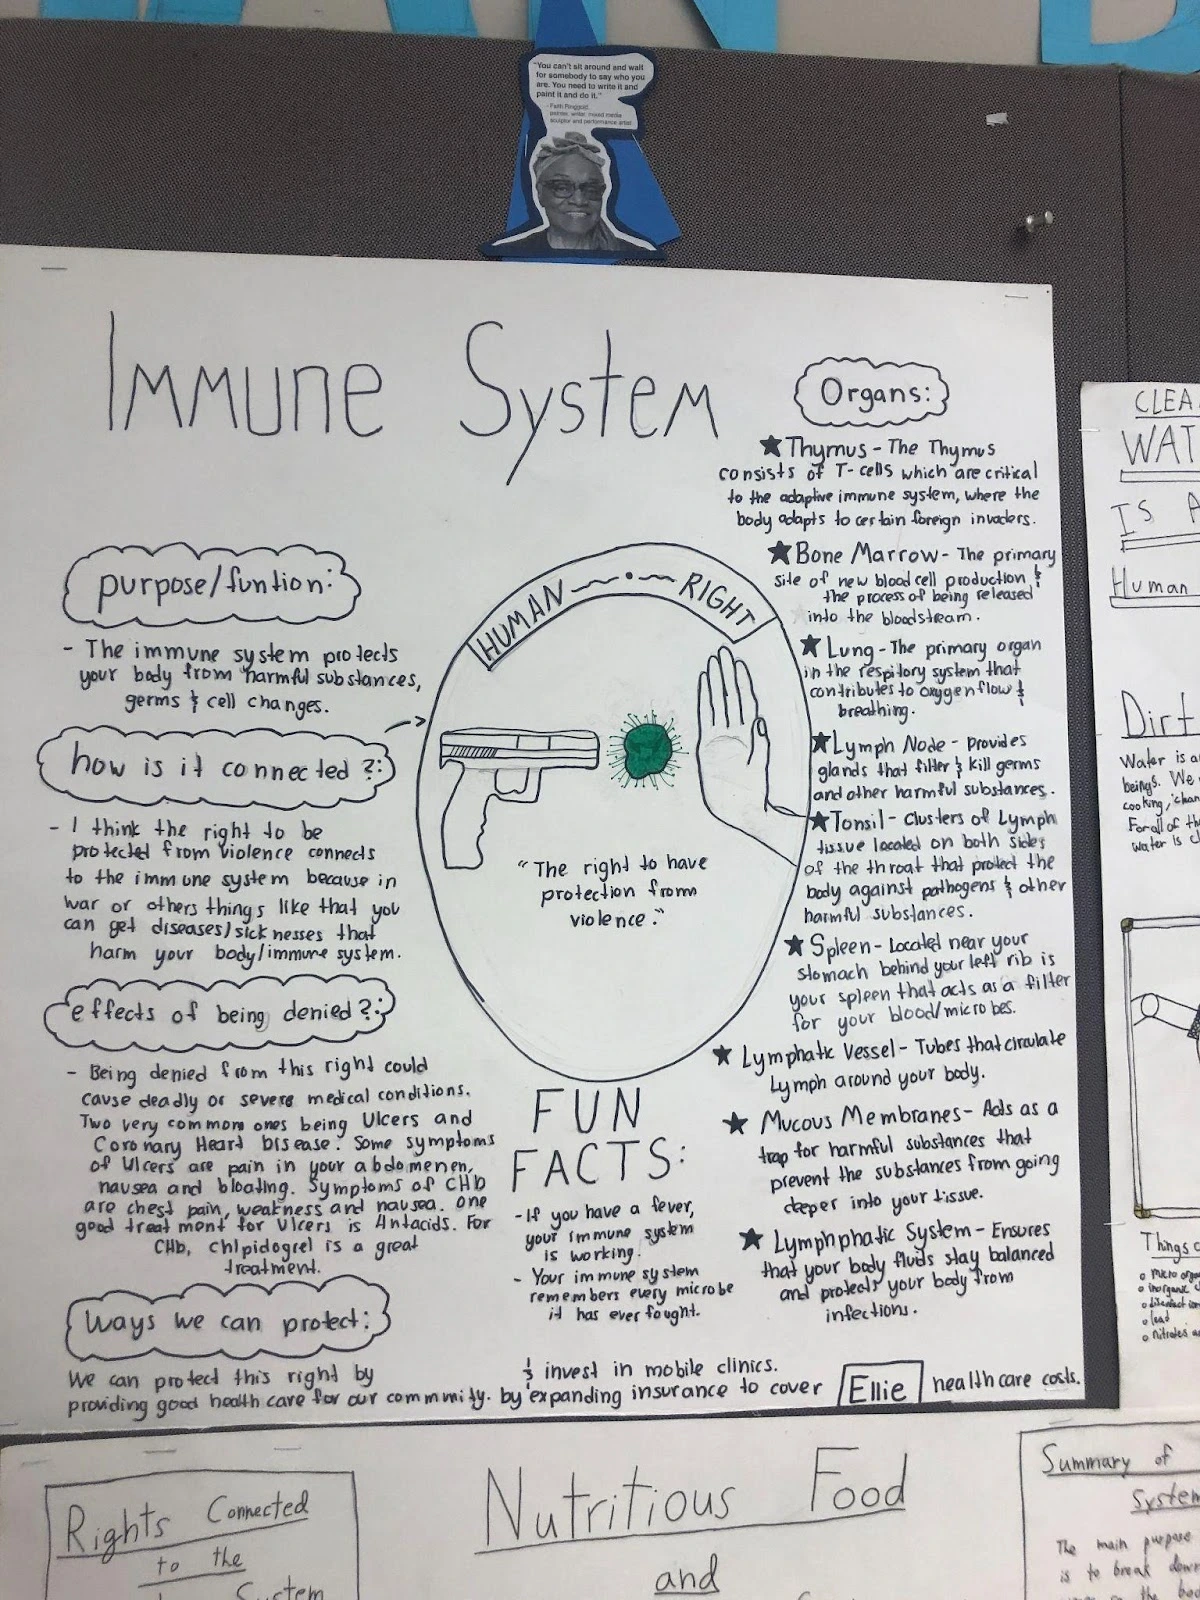 "You can't sit around and wait
for somebody to say who you
are. You need to write it and
paint it and do it."
- Faith Ringgold
painter, writer, mixed media
sculptor and performance artist
Immune System
purpose/funtion:
- The immune system protects
your body from harmful substances,
germs & cell changes.
how is it connected?:
- I think the right to be
protected from violence connects
to the immune system because in
war or others things like that you
can get diseases/sicknesses that
harm your body/immune system.
effects of being denied?:
- Being denied from this right could
cause deadly or severe medical conditions.
Two very common ones being Ulcers and
Coronary Heart Disease. Some symptoms
of Ulcers are pain in your abdomenen,
nausea and bloating. Symptoms of CHD
are chest pain, weakness and nausea. One
good treatment for Ulcers is Antacids. For
CHD, Chlpidogrel is a great
treatment.
Ways we can protect:
We can protect this right by
providing good health care for our commnity. by expanding insurance to cover healthcare costs.
& invest in mobile clinics.
Ellie
HUMAN RIGHT
"The right to have
protection from
violence."
FUN
FACTS:
- If you have a fever,
your immune system
is working.
- Your immune system
remembers every microbe
it has ever fought.
Organs:
Thymus - The Thymus
consists of T-cells which are critical
to the adaptive immune system, where the
body adapts to certain foreign invaders.
Bone Marrow - The primary
site of new blood cell production &
the process of being released
into the bloodstream.
Lung - The primary organ
in the respitory system that
contributes to oxygen flow &
breathing.
Lymph Node - provides
glands that filter & kill germs
and other harmful substances.
Tonsil - Clusters of Lymph
tissue located on both sides
of the throat that protect the
body against pathogens & other
harmful substances.
Spleen - Located near your
stomach behind your left rib is
your spleen that acts as a filter
for your blood/microbes.
Lymphatic Vessel - Tubes that circulate
Lymph around your body.
Mucous Membranes - Acts as a
trap for harmful substances that
prevent the substances from going
deeper into your tissue.
Lymphphatic System - Ensures
that your body fluids stay balanced
and protects your body from
infections.
CLEA
WAT
IS A
Human
Dirt
Water is a
beings. We
cooking,
For all of th
water is c
Things c
micro orga
inorganic
lead
nitrates a
Rights Connected
to the
System
Nutritious Food
and
Summary of
System
The main purpose
is to break down